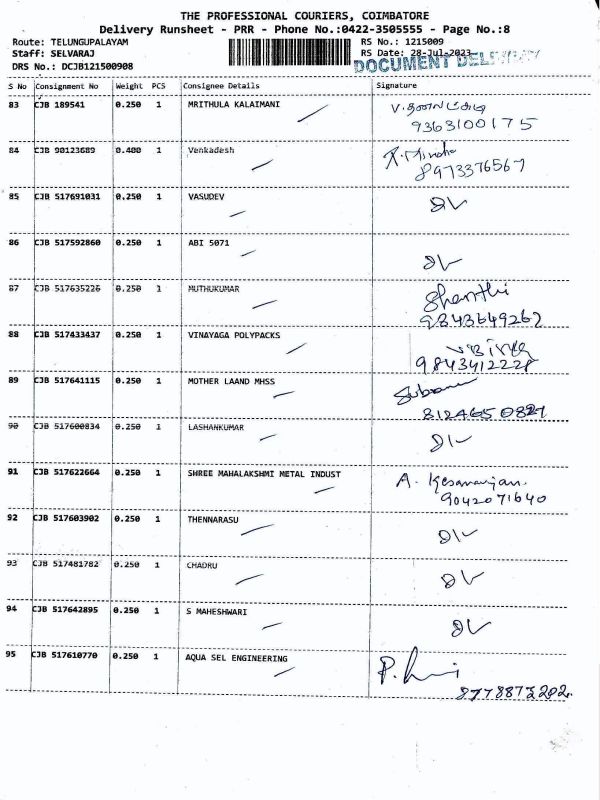 THE PROFESSIONAL COURIERS, COIMBATORE
Delivery Runsheet - PRR - Phone No.:0422-3505555 - Page No.:8
Route: TELUNGUPALAYAM RS No.: 1215009
Staff: SELVARAJ RS Date: 28-Jul-2023
DRS No.: DCJB121500908 DOCUMENT DELIVERY
S No Consignment No Weight PCS Consignee Details Signature
83 CJB 189541 0.250 1 MRITHULA KALAIMANI
9363100175
84 CJB 90123689 0.400 1 Venkadesh
8973376567
85 CJB 517691031 0.250 1 VASUDEV
86 CJB 517592860 0.250 1 ABI 5071
87 CJB 517635226 0.250 1 MUTHUKUMAR Shanthi
9843649267
88 CJB 517433437 0.250 1 VINAYAGA POLYPACKS
9843412228
89 CJB 517641115 0.250 1 MOTHER LAAND MHSS
8124650827
90 CJB 517600834 0.250 1 LASHANKUMAR
91 CJB 517622664 0.250 1 SHREE MAHALAKSHMI METAL INDUST A.
9042071640
92 CJB 517603902 0.250 1 THENNARASU
93 CJB 517481782 0.250 1 CHADRU
94 CJB 517642895 0.250 1 S MAHESHWARI
95 CJB 517610770 0.250 1 AQUA SEL ENGINEERING